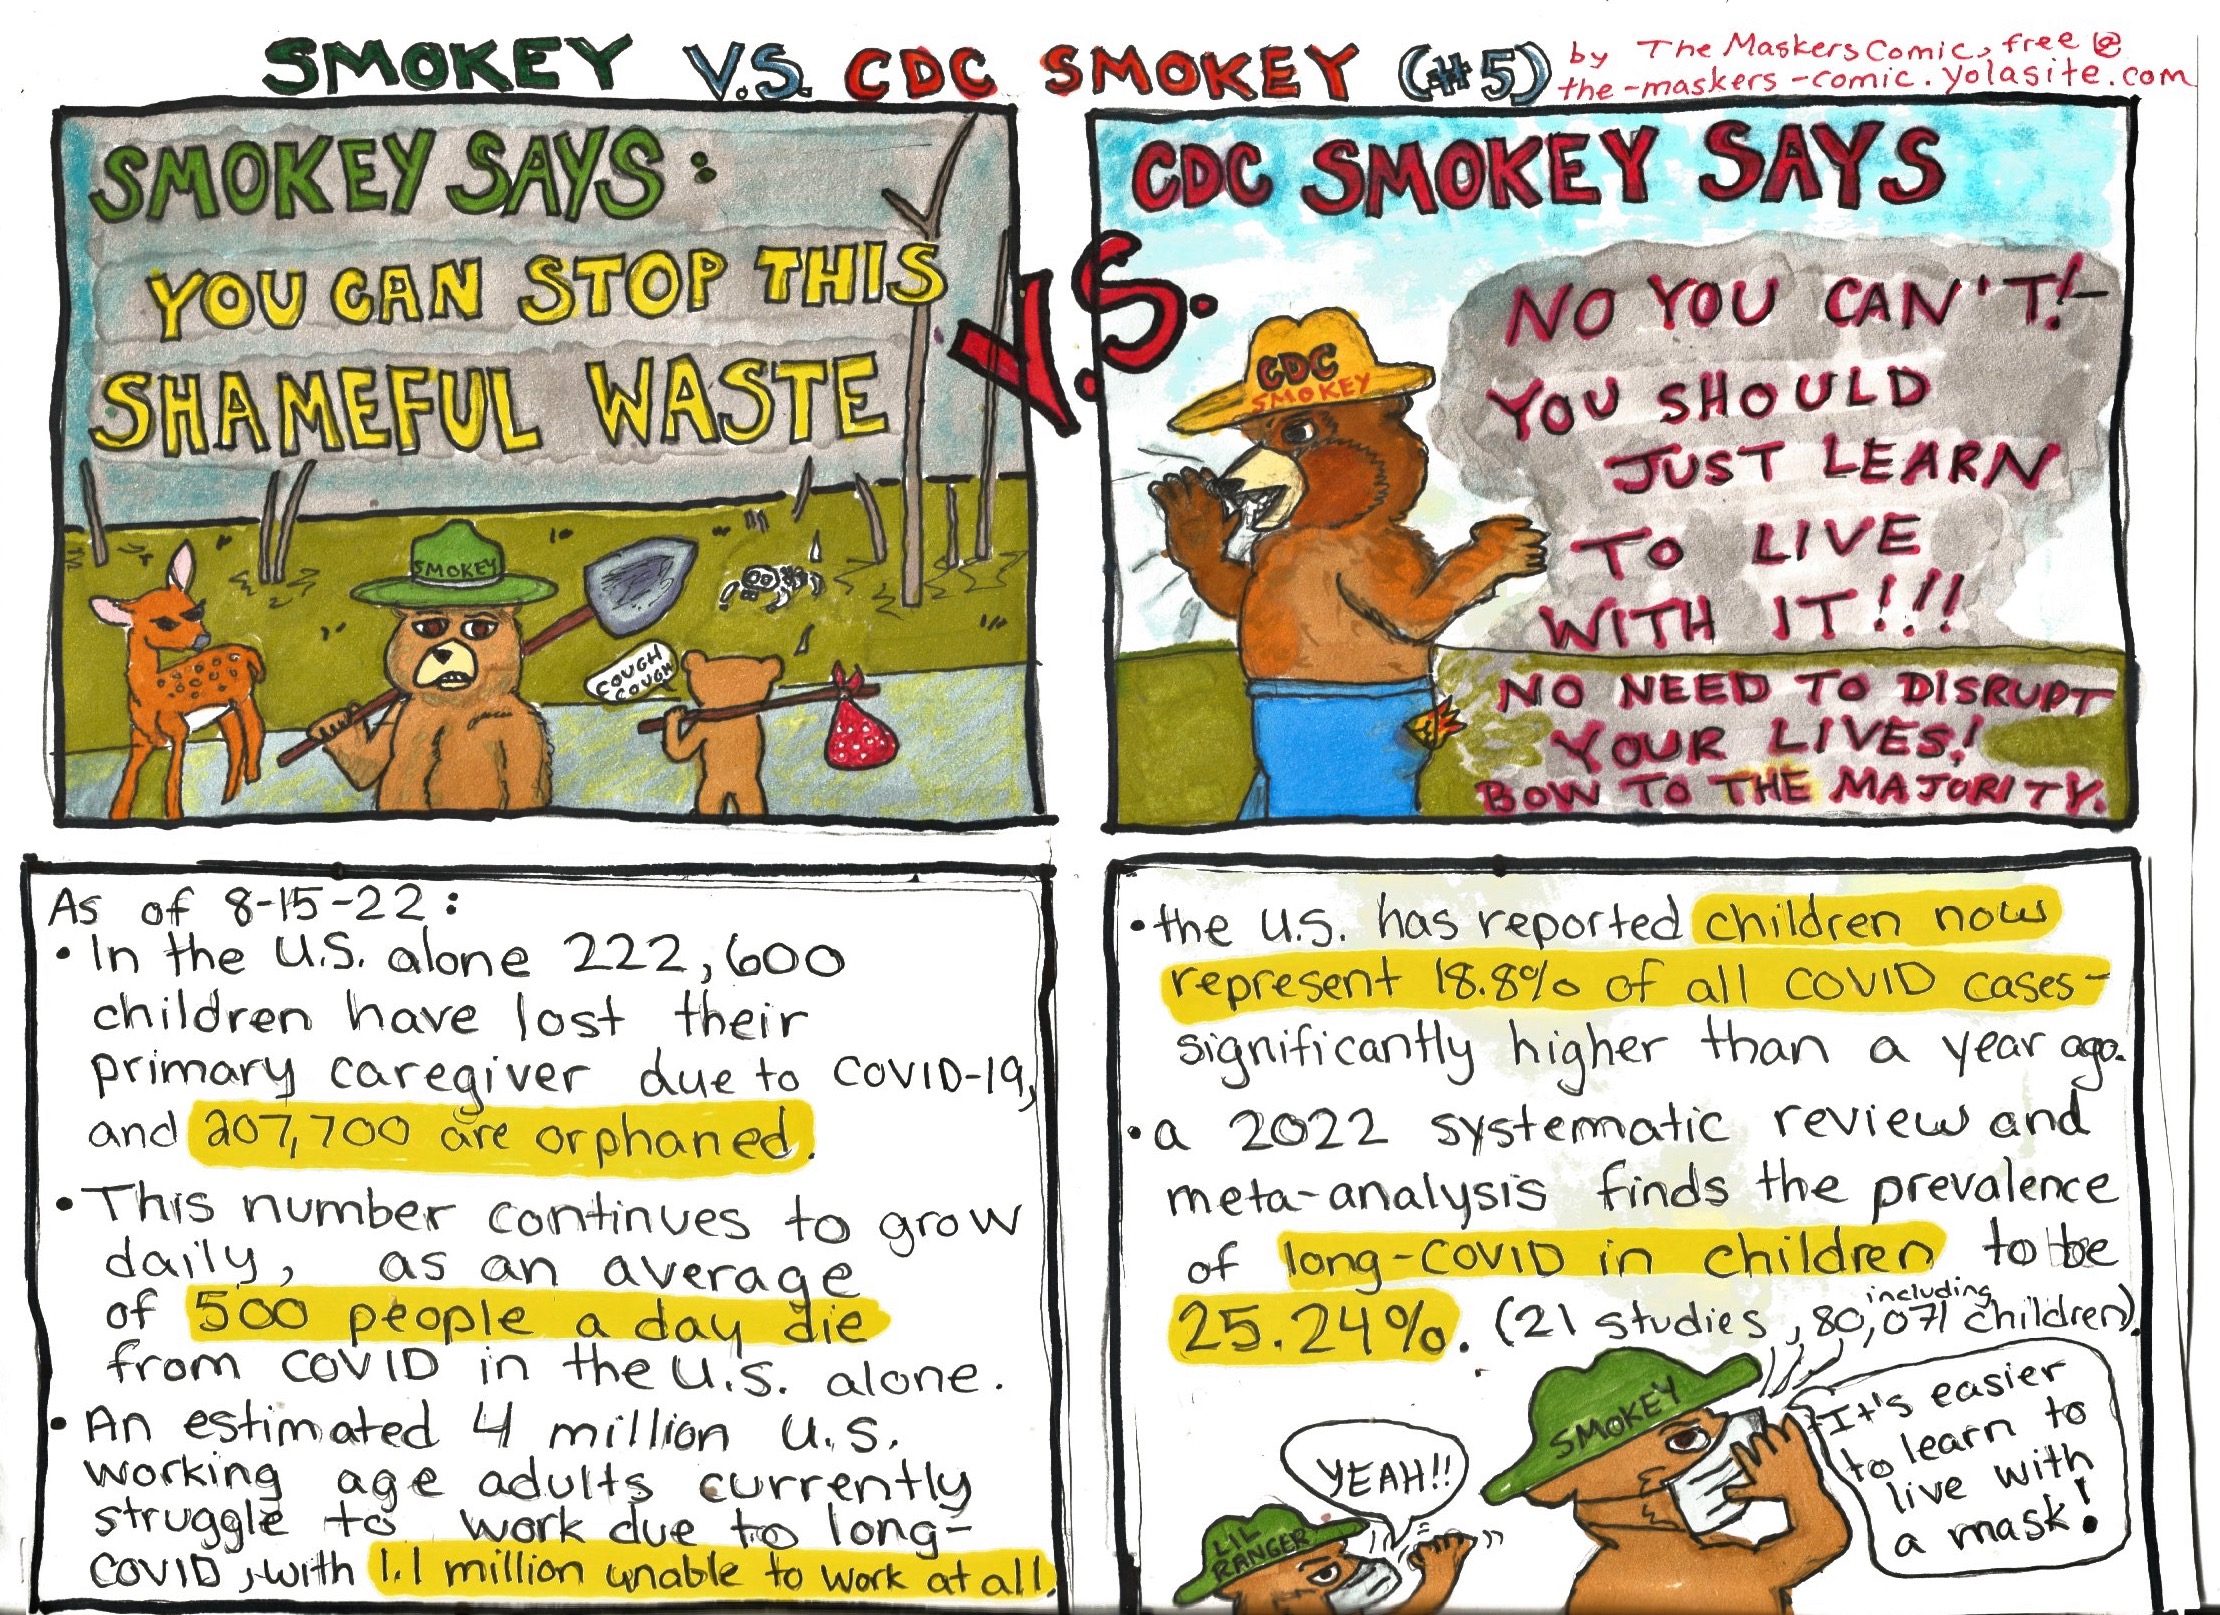 SMOKEY V.S. CDC SMOKEY (#5)
by The Maskers Comic, free @
the-maskers-comic.yolasite.com
SMOKEY SAYS:
YOU CAN STOP THIS
SHAMEFUL WASTE
SMOKEY
COUGH
COUGH
V.S.
CDC SMOKEY SAYS
CDC
SMOKEY
NO YOU CAN'T!-
YOU SHOULD
JUST LEARN
TO LIVE
WITH IT!!!
NO NEED TO DISRUPT
YOUR LIVES!
BOW TO THE MAJORITY.
As of 8-15-22:
• In the U.S. alone 222,600
children have lost their
primary caregiver due to COVID-19,
and 207,700 are orphaned.
• This number continues to grow
daily, as an average
of 500 people a day die
from COVID in the U.S. alone.
• An estimated 4 million U.S.
working age adults currently
struggle to work due to long-
COVID, with 1.1 million unable to work at all.
• the U.S. has reported children now
represent 18.8% of all COVID cases-
significantly higher than a year ago.
• a 2022 systematic review and
meta-analysis finds the prevalence
of long-COVID in children to be
25.24%. (21 studies, including 80,071 children).
YEAH!!
LIL
RANGER
SMOKEY
It's easier
to learn to
live with
a mask!